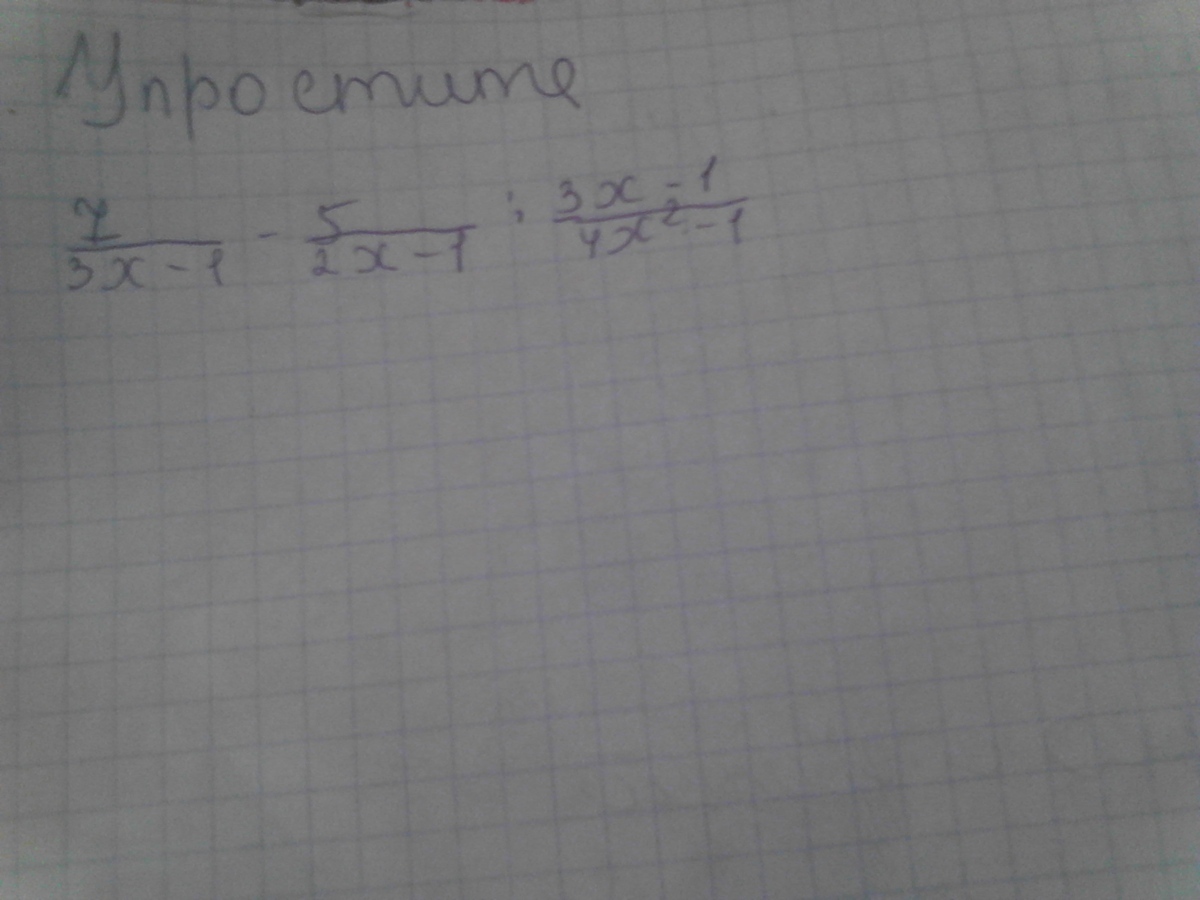 Упростите
7/(3x-1) - 5/(2x-1) : (3x-1)/(4x²-1)